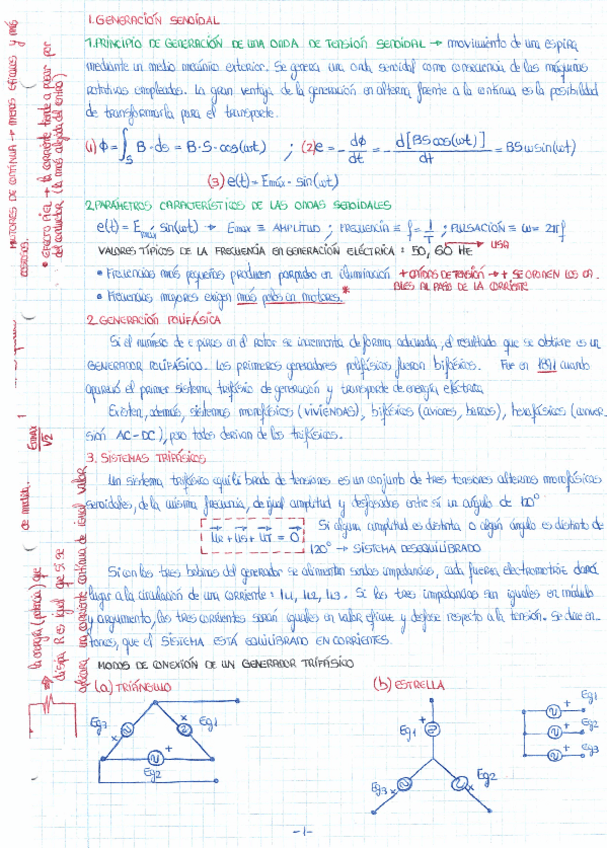 1. GENERACIÓN SENOIDAL
1. PRINCIPIO DE GENERACIÓN DE UNA ONDA DE TENSIÓN SENOIDAL → movimiento de una espira
mediante un medio mecánico exterior. Se genera una onda senoidal como consecuencia de las máquinas
rotativas empleadas. La gran ventaja de la generación en alterna frente a la continua es la posibilidad
de transformarla para el transporte.
(1) Φ = ∫s B · ds = B · S · cos(ωt) ; (2) e = - dΦ/dt = - d[BScos(ωt)]/dt = BSωsin(ωt)
(3) e(t) = Emáx · sin(ωt)
2. PARÁMETROS CARACTERÍSTICOS DE LAS ONDAS SENOIDALES
e(t) = Emáx sin(ωt) → Emáx ≡ AMPLITUD ; FRECUENCIA ≡ f = 1/T ; PULSACIÓN ≡ ω = 2πf
VALORES TÍPICOS DE LA FRECUENCIA EN GENERACIÓN ELÉCTRICA : 50, 60 Hz → USA
• Frecuencias más pequeñas producen parpadeo en iluminación + CAÍDAS DE TENSIÓN → + SE OPONEN LOS CA-
BLES AL PASO DE LA CORRIENTE
• Frecuencias mayores exigen más polos en motores. *
2. GENERACIÓN POLIFÁSICA
Si el número de espiras en el rotor se incrementa de forma adecuada, el resultado que se obtiene es un
GENERADOR POLIFÁSICO. Los primeros generadores polifásicos fueron bifásicos. Fue en 1891 cuando
apareció el primer sistema trifásico de generación y transporte de energía eléctrica.
Existen, además, sistemas monofásicos (VIVIENDAS), bifásicos (aviones, barcos), hexafásicos (conver-
sión AC-DC), pero todos derivan de los trifásicos.
3. SISTEMAS TRIFÁSICOS
Un sistema trifásico equilibrado de tensiones es un conjunto de tres tensiones alternas monofásicas
senoidales, de la misma frecuencia, de igual amplitud y desfasadas entre sí un ángulo de 120°
UR + US + UT = 0 Si alguna amplitud es distinta o algún ángulo es distinto de
120° → SISTEMA DESEQUILIBRADO
Si con las tres bobinas del generador se alimentan sendas impedancias, cada fuerza electromotriz dará
lugar a la circulación de una corriente : i1, i2, i3. Si las tres impedancias son iguales en módulo
y argumento, las tres corrientes serán iguales en valor eficaz y desfase respecto a la tensión. Se dice en-
tonces, que el SISTEMA ESTÁ EQUILIBRADO EN CORRIENTES.
MODOS DE CONEXIÓN DE UN GENERADOR TRIFÁSICO
(a) TRIÁNGULO
(b) ESTRELLA
Eg3
Eg1
Eg2
Eg1
Eg3
Eg2
Eg1
Eg2
Eg3
-1-
MOTORES DE CONTINUA → menos eficaces y más
costosos.
• EFECTO PIEL → la corriente tiende a pasar por
del conductor (la más alejada del centro)
Emáx/√2
de medida.
la energía (potencia) que
disipa R es igual que si se
aplicara una corriente continua de igual valor